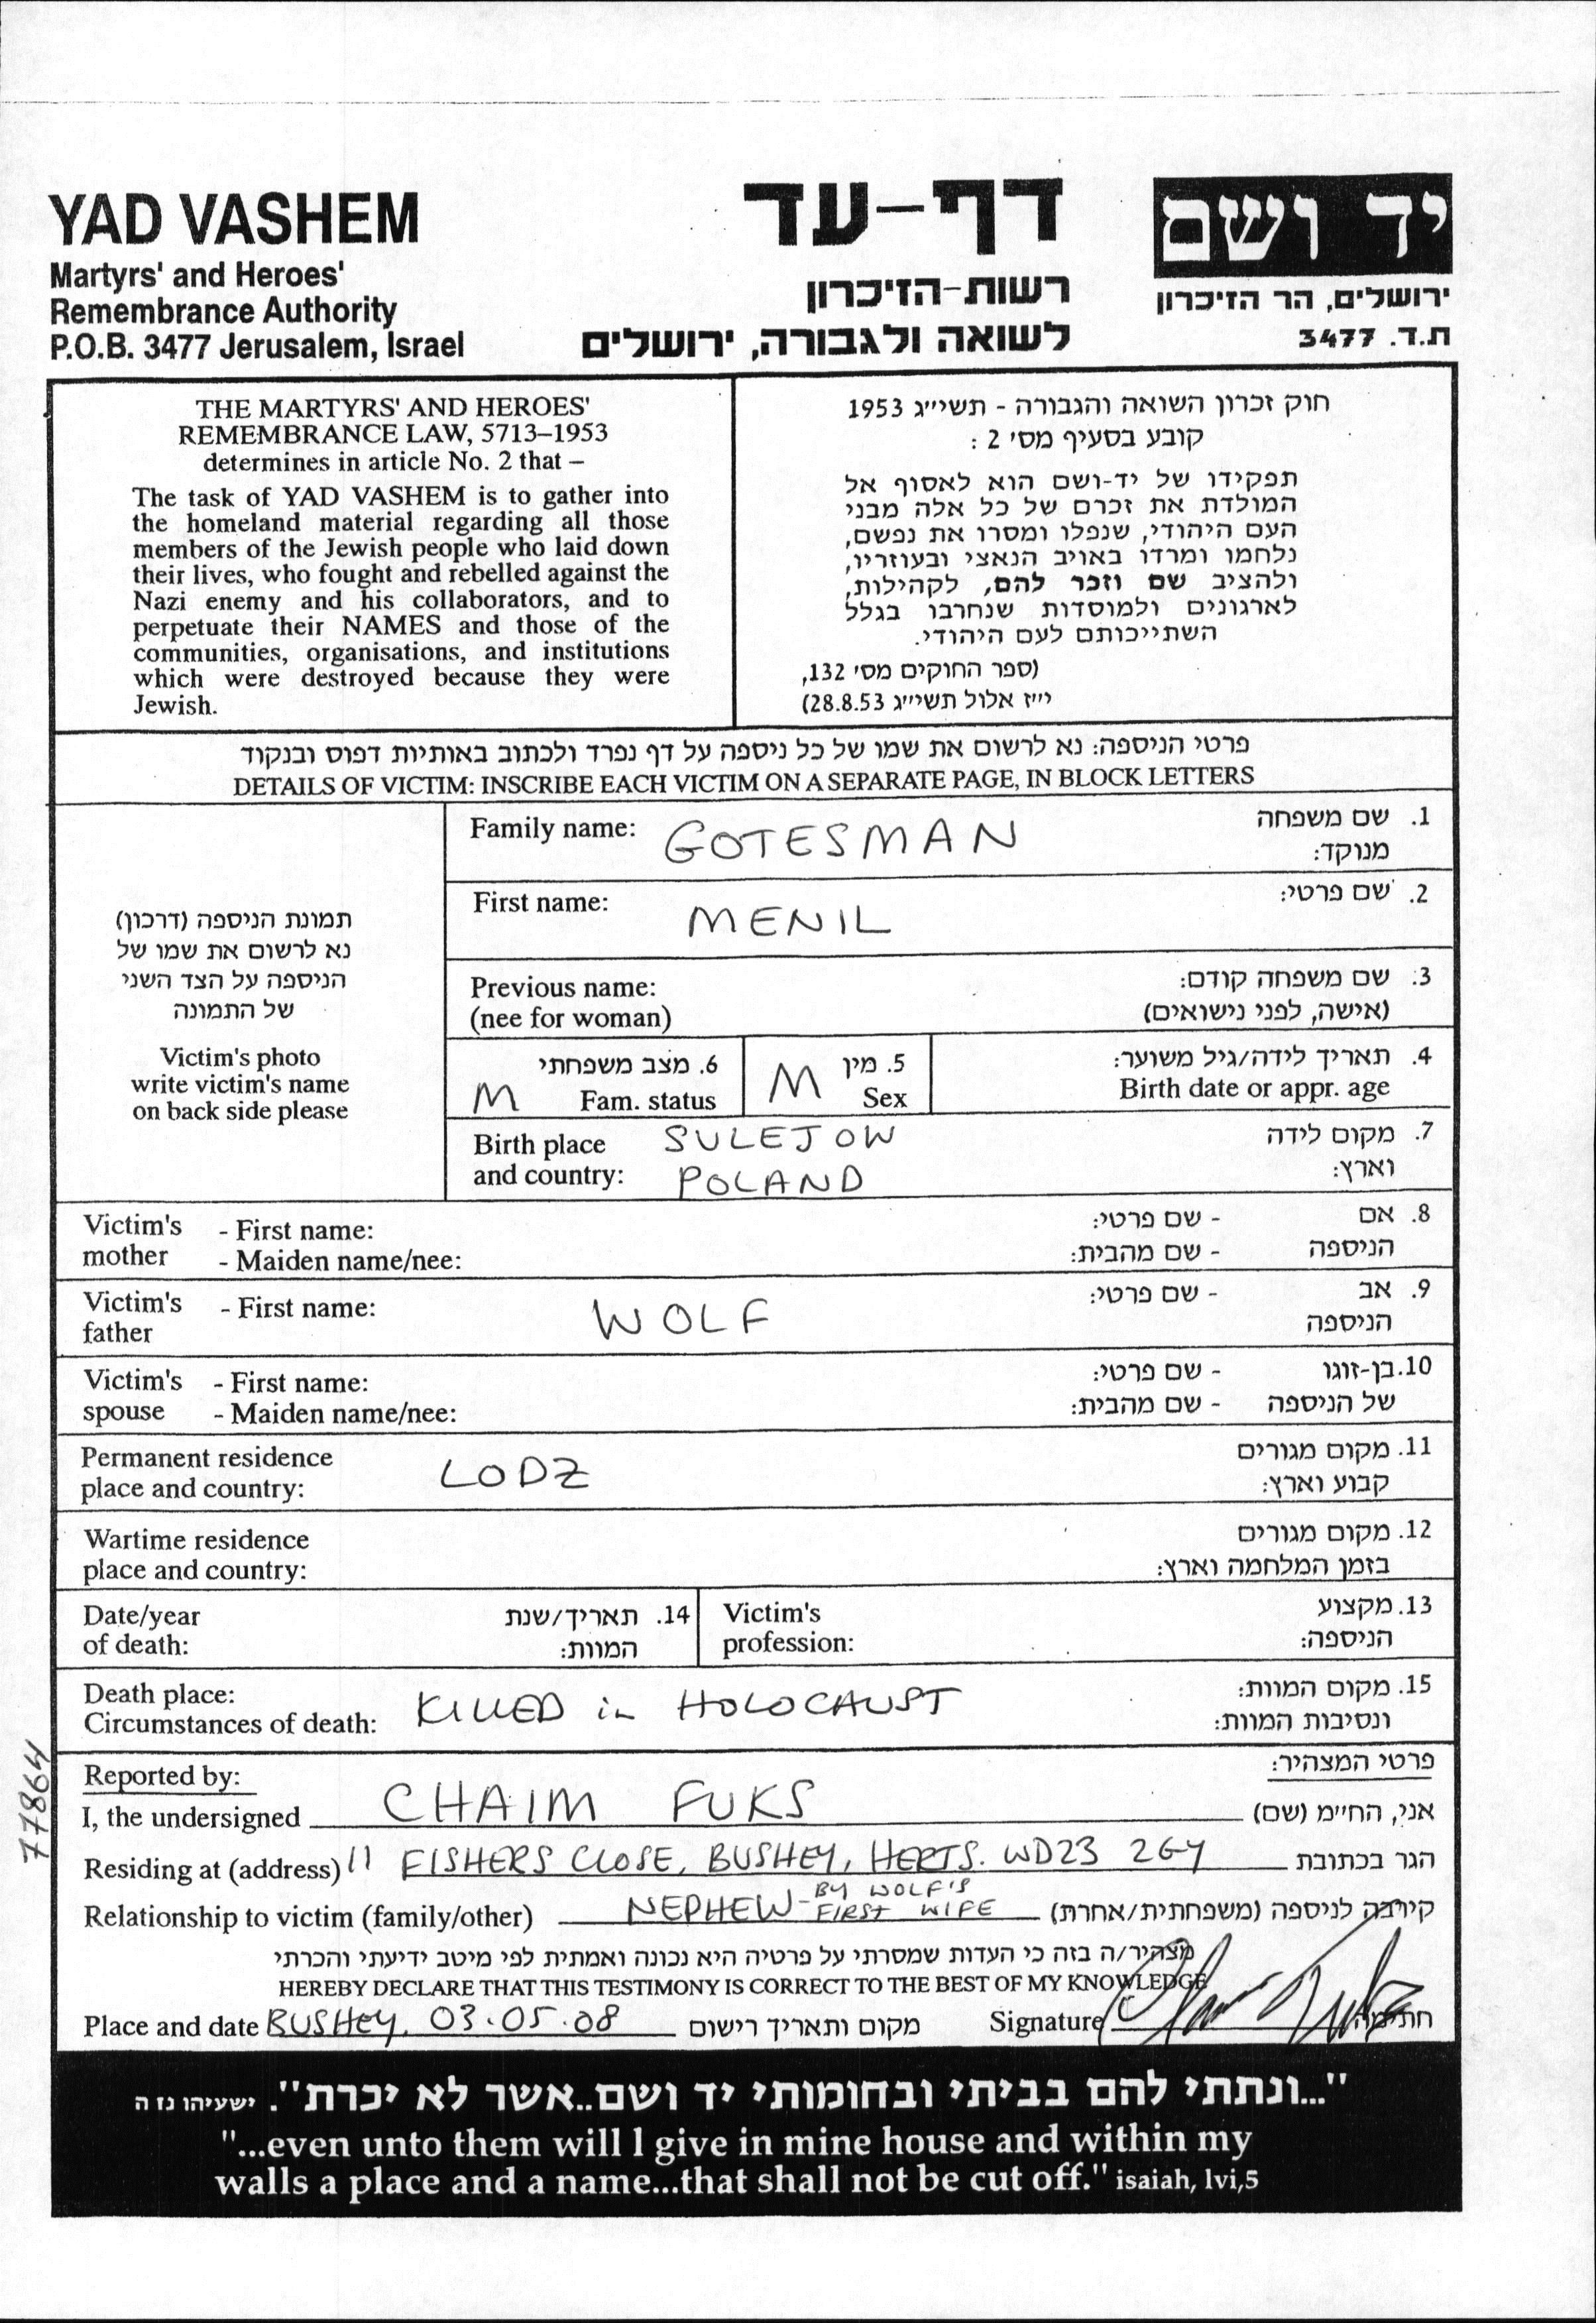 YAD VASHEM
Martyrs' and Heroes'
Remembrance Authority
P.O.B. 3477 Jerusalem, Israel
דף-עד
רשות-הזיכרון
לשואה ולגבורה, ירושלים
יד ושם
ירושלים, הר הזיכרון
ת.ד. 3477
THE MARTYRS' AND HEROES'
REMEMBRANCE LAW, 5713–1953
determines in article No. 2 that –
The task of YAD VASHEM is to gather into
the homeland material regarding all those
members of the Jewish people who laid down
their lives, who fought and rebelled against the
Nazi enemy and his collaborators, and to
perpetuate their NAMES and those of the
communities, organisations, and institutions
which were destroyed because they were
Jewish.
חוק זכרון השואה והגבורה - תשי״ג 1953
קובע בסעיף מס׳ 2 :
תפקידו של יד-ושם הוא לאסוף אל
המולדת את זכרם של כל אלה מבני
העם היהודי, שנפלו ומסרו את נפשם,
נלחמו ומרדו באויב הנאצי ובעוזריו,
ולהציב שם וזכר להם, לקהילות,
לארגונים ולמוסדות שנחרבו בגלל
השתייכותם לעם היהודי.
(ספר החוקים מס׳ 132,
י״ז אלול תשי״ג 28.8.53)
פרטי הניספה: נא לרשום את שמו של כל ניספה על דף נפרד ולכתוב באותיות דפוס ובנקוד
DETAILS OF VICTIM: INSCRIBE EACH VICTIM ON A SEPARATE PAGE, IN BLOCK LETTERS
תמונת הניספה (דרכון)
נא לרשום את שמו של
הניספה על הצד השני
של התמונה
Victim's photo
write victim's name
on back side please
Family name: GOTESMAN 1. שם משפחה
מנוקד:
First name: MENIL 2. שם פרטי:
Previous name: 3. שם משפחה קודם:
(nee for woman) (אישה, לפני נישואים)
6. מצב משפחתי 5. מין 4. תאריך לידה/גיל משוער:
M Fam. status M Sex Birth date or appr. age
Birth place SULEJOW 7. מקום לידה
and country: POLAND וארץ:
Victim's - First name: - שם פרטי: 8. אם
mother - Maiden name/nee: - שם מהבית: הניספה
Victim's - First name: WOLF - שם פרטי: 9. אב
father הניספה
Victim's - First name: - שם פרטי: 10. בן-זוגו
spouse - Maiden name/nee: - שם מהבית: של הניספה
Permanent residence LODZ 11. מקום מגורים
place and country: קבוע וארץ:
Wartime residence 12. מקום מגורים
place and country: בזמן המלחמה וארץ:
Date/year 14. תאריך/שנת Victim's 13. מקצוע
of death: המוות: profession: הניספה:
Death place: 15. מקום המוות:
Circumstances of death: KILLED in HOLOCAUST ונסיבות המוות:
Reported by: פרטי המצהיר:
I, the undersigned CHAIM FUKS אני, החי״מ (שם)
Residing at (address) 11 FISHERS CLOSE, BUSHEY, HERTS. WD23 2GY הגר בכתובת
Relationship to victim (family/other) NEPHEW - BY WOLF'S FIRST WIFE קירבה לניספה (משפחתית/אחרת)
מצהיר/ה בזה כי העדות שמסרתי על פרטיה היא נכונה ואמתית לפי מיטב ידיעתי והכרתי
HEREBY DECLARE THAT THIS TESTIMONY IS CORRECT TO THE BEST OF MY KNOWLEDGE
Place and date BUSHEY, 03.05.08 מקום ותאריך רישום Signature חתימה
77864
"...ונתתי להם בביתי ובחומותי יד ושם..אשר לא יכרת". ישעיהו נז ה
"...even unto them will I give in mine house and within my
walls a place and a name...that shall not be cut off." isaiah, lvi,5